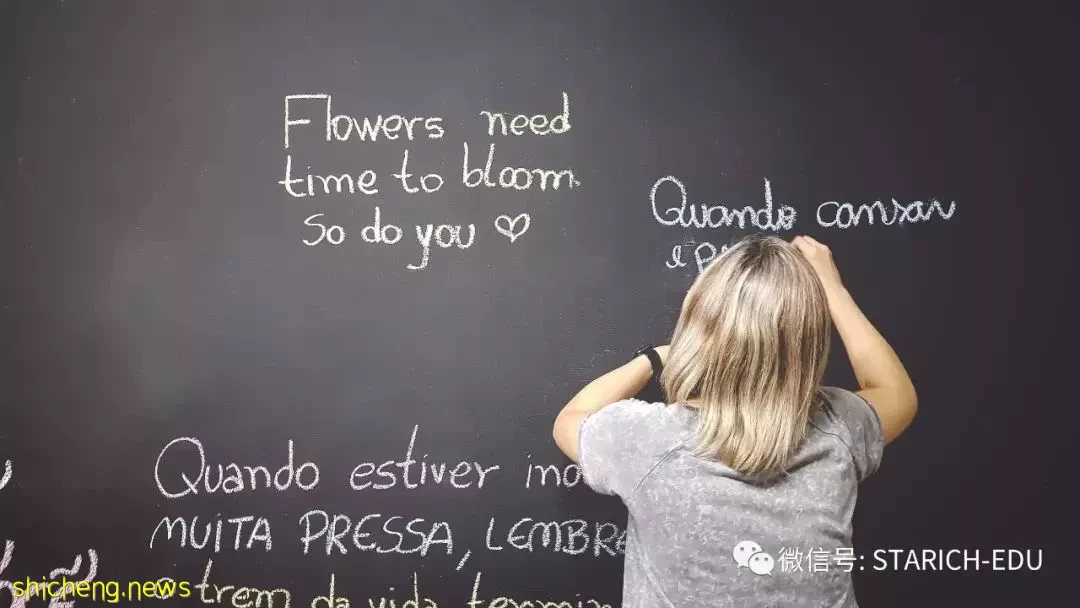 Flowers need
time to bloom
so do you
Quando cansar
Quando estiver
MUITA PRESSA, LEMBRE
o trem da vida
微信号: STARICH-EDU
shicheng.news